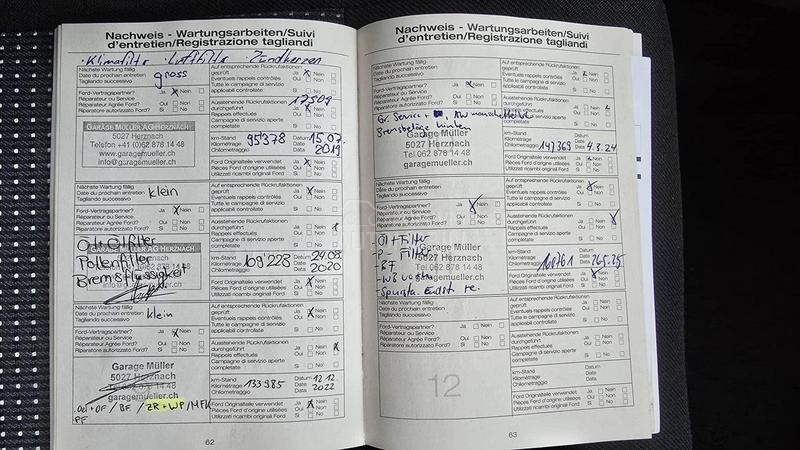 Nachweis - Wartungsarbeiten/Suivi
d'entretien/Registrazione tagliandi
Klimafilter Luftfilter Zündkerzen
Nächste Wartung fällig
Date du prochain entretien
Tagliando successivo
gross
Ford-Vertragspartner? Ja x Nein
Réparateur ou Service Oui Non
Réparateur Agréé Ford? Si No
Riparatore autorizzato Ford?
GARAGE MÜLLER AG HERZNACH
5027 Herznach
Telefon +41 (0)62 878 14 48
www.garagemueller.ch
info@garagemueller.ch
Auf entsprechende Rückrufaktionen
geprüft Ja x Nein
Eventuels rappels contrôlés Oui Non
Tutte le campagne di servizio Si No
applicabili controllate
Ausstehende Rückrufaktionen 17S09
durchgeführt Ja x Nein
Rappels effectués Oui Non
Campagne di servizio aperte Si No
completate
km-Stand Datum
Kilométrage 95378 Date 15.07.
Chilometraggio Data 2019
Ford Originalteile verwendet Ja x Nein
Pièces Ford d'origine utilisées Oui Non
Utilizzati ricambi originali Ford Si No
Nächste Wartung fällig
Date du prochain entretien klein
Tagliando successivo
Ford-Vertragspartner? Ja x Nein
Réparateur ou Service Oui Non
Réparateur Agréé Ford? Si No
Riparatore autorizzato Ford?
Öl + Ölfilter
GARAGE MÜLLER AG HERZNACH
Pollenfilter
Bremsflüssigkeit
info@garagemueller.ch
Auf entsprechende Rückrufaktionen
geprüft Ja x Nein
Eventuels rappels contrôlés Oui Non
Tutte le campagne di servizio Si No
applicabili controllate
Ausstehende Rückrufaktionen
durchgeführt Ja Nein
Rappels effectués Oui Non
Campagne di servizio aperte Si No
completate
km-Stand Datum
Kilométrage 109'228 Date 24.08.
Chilometraggio Data 2020
Ford Originalteile verwendet Ja x Nein
Pièces Ford d'origine utilisées Oui Non
Utilizzati ricambi originali Ford Si No
Nächste Wartung fällig
Date du prochain entretien
Tagliando successivo klein
Ford-Vertragspartner? Ja x Nein
Réparateur ou Service Oui Non
Réparateur Agréé Ford? Si No
Riparatore autorizzato Ford?
Garage Müller
5027 Herznach
garagemueller.ch
Oel + OF / BF / ZR + WP / MFK
PF
Auf entsprechende Rückrufaktionen
geprüft Ja x Nein
Eventuels rappels contrôlés Oui Non
Tutte le campagne di servizio Si No
applicabili controllate
Ausstehende Rückrufaktionen
durchgeführt Ja Nein x
Rappels effectués Oui Non
Campagne di servizio aperte Si No
completate
km-Stand Datum
Kilométrage 133985 Date 12.12.
Chilometraggio Data 2022
Ford Originalteile verwendet Ja x Nein
Pièces Ford d'origine utilisées Oui Non
Utilizzati ricambi originali Ford Si No
62
Nachweis - Wartungsarbeiten/Suivi
d'entretien/Registrazione tagliandi
Nächste Wartung fällig
Date du prochain entretien
Tagliando successivo
Ford-Vertragspartner? Ja x Nein
Réparateur ou Service Oui Non
Réparateur Agréé Ford? Si No
Riparatore autorizzato Ford?
Gr. Service +
Bremsbeläge hinten
Garage Müller
5027 Herznach
Tel.062 878 14 48
garagemueller.ch
Auf entsprechende Rückrufaktionen
geprüft Ja Nein
Eventuels rappels contrôlés Oui Non
Tutte le campagne di servizio Si No
applicabili controllate
Ausstehende Rückrufaktionen
durchgeführt Ja Nein
Rappels effectués Oui Non
Campagne di servizio aperte Si No
completate
km-Stand Datum
Kilométrage 147369 Date 4.3.24
Chilometraggio Data
Ford Originalteile verwendet Ja x Nein
Pièces Ford d'origine utilisées Oui Non
Utilizzati ricambi originali Ford Si No
Nächste Wartung fällig
Date du prochain entretien
Tagliando successivo
Ford-Vertragspartner? Ja x Nein
Réparateur ou Service Oui Non
Réparateur Agréé Ford? Si No
Riparatore autorizzato Ford?
- Öl + Filter
- P - Filter
- BF
Garage Müller
5027 Herznach
Tel.062 878 14 48
garagemueller.ch
Auf entsprechende Rückrufaktionen
geprüft Ja x Nein
Eventuels rappels contrôlés Oui Non
Tutte le campagne di servizio Si No
applicabili controllate
Ausstehende Rückrufaktionen
durchgeführt Ja Nein x
Rappels effectués Oui Non
Campagne di servizio aperte Si No
completate
km-Stand Datum
Kilométrage Date
Chilometraggio Data
Ford Originalteile verwendet Ja x Nein
Pièces Ford d'origine utilisées Oui Non
Utilizzati ricambi originali Ford Si No
Nächste Wartung fällig
Date du prochain entretien
Tagliando successivo
Ford-Vertragspartner? Ja Nein
Réparateur ou Service Oui Non
Réparateur Agréé Ford? Si No
Riparatore autorizzato Ford?
12
Auf entsprechende Rückrufaktionen
geprüft Ja Nein
Eventuels rappels contrôlés Oui Non
Tutte le campagne di servizio Si No
applicabili controllate
Ausstehende Rückrufaktionen
durchgeführt Ja Nein
Rappels effectués Oui Non
Campagne di servizio aperte Si No
completate
km-Stand Datum
Kilométrage Date
Chilometraggio Data
Ford Originalteile verwendet Ja Nein
Pièces Ford d'origine utilisées Oui Non
Utilizzati ricambi originali Ford Si No
63